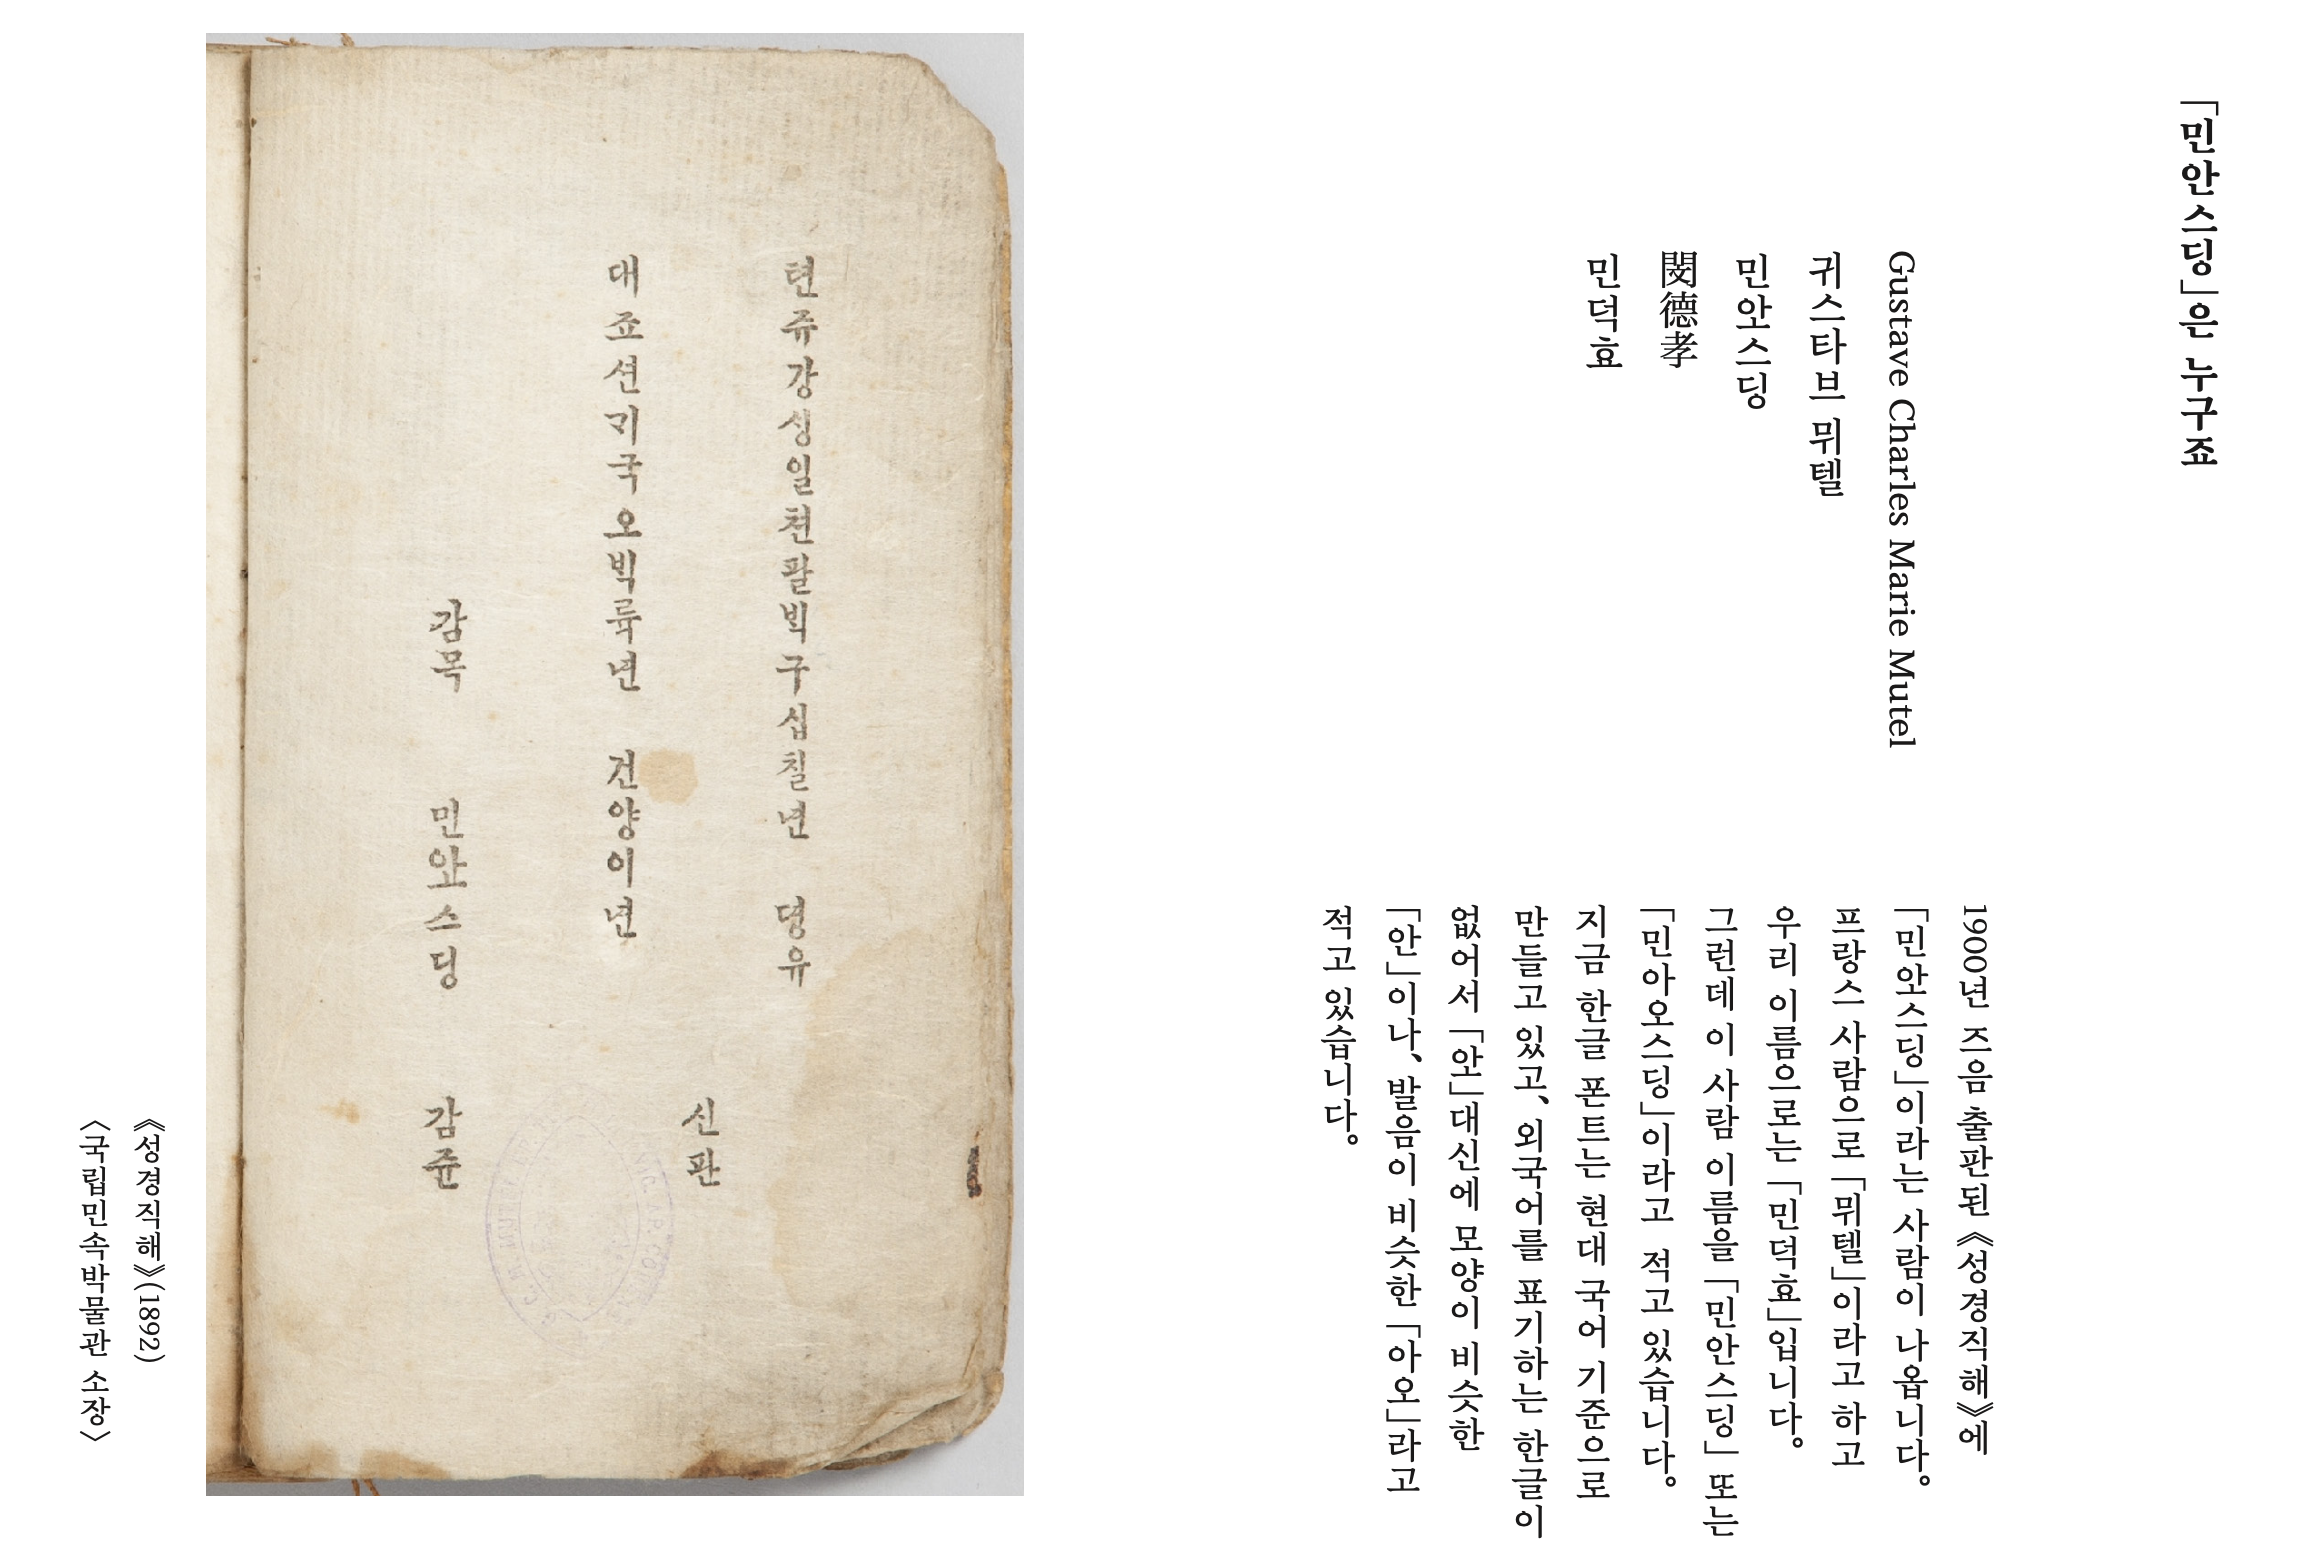 「민안스딩」은 누구죠
Gustave Charles Marie Mutel
귀스타브 뮈텔
민ᄋᅶ스딩
閔德孝
민덕효
1900년 즈음 출판된 《성경직해》에
「민ᄋᅶ스딩」이라는 사람이 나옵니다。
프랑스 사람으로 「뮈텔」이라고 하고
우리 이름으로는 「민덕효」입니다。
그런데 이 사람 이름을 「민안스딩」 또는
「민아오스딩」이라고 적고 있습니다。
지금 한글 폰트는 현대 국어 기준으로
만들고 있고、외국어를 표기하는 한글이
없어서 「ᄋᅶ」대신에 모양이 비슷한
「안」이나、발음이 비슷한 「아오」라고
적고 있습니다。
텬쥬강ᄉᆡᆼ일쳔팔ᄇᆡᆨ구십칠년 뎡유
신판
대죠션ᄀᆡ국오ᄇᆡᆨ륙년 건양이년
감목 민ᄋᅶ스딩 감쥰
《성경직해》(1892)
〈국립민속박물관 소장〉